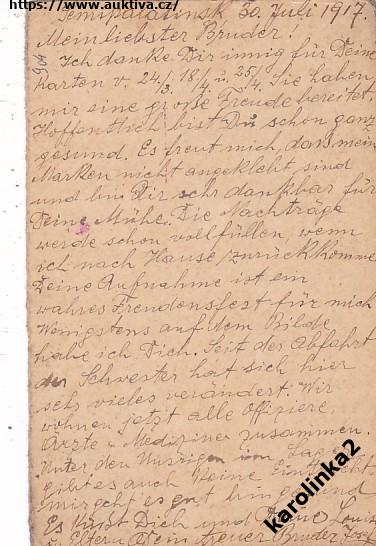 https://www.auktiva.cz/
Semipalatinsk 30. Juli 1917.
Mein liebster Bruder!
Ich danke Dir innig für Deine
Karten v. 24/3. 18/4 u. 25/4. Sie haben
mir eine große Freude bereitet.
Hoffentlich bist Du schon ganz
gesund. Es freut mich, dass mein
Marken nicht angeklebt sind
und bin Dir sehr dankbar für
Deine Mühe. Die Nachträge
werde schon vollfüllen, wenn
ich nach Hause zurückkomme
Deine Aufnahme ist ein
wahres Freudensfest für mich
Wenigstens auf dem Bilde
habe ich Dich. Seit der Abfahrt
der Schwester hat sich hier
sehr vieles verändert. Wir
wohnen jetzt alle Offiziere,
Ärzte u. Mediziner zusammen.
Unter den Unsrigen im
gibt es auch keine
mir geht es gut bin gesund
Es küsst Dich und Deine Louise
u. Eltern Dein treuer Bruder Josef
karolinka2